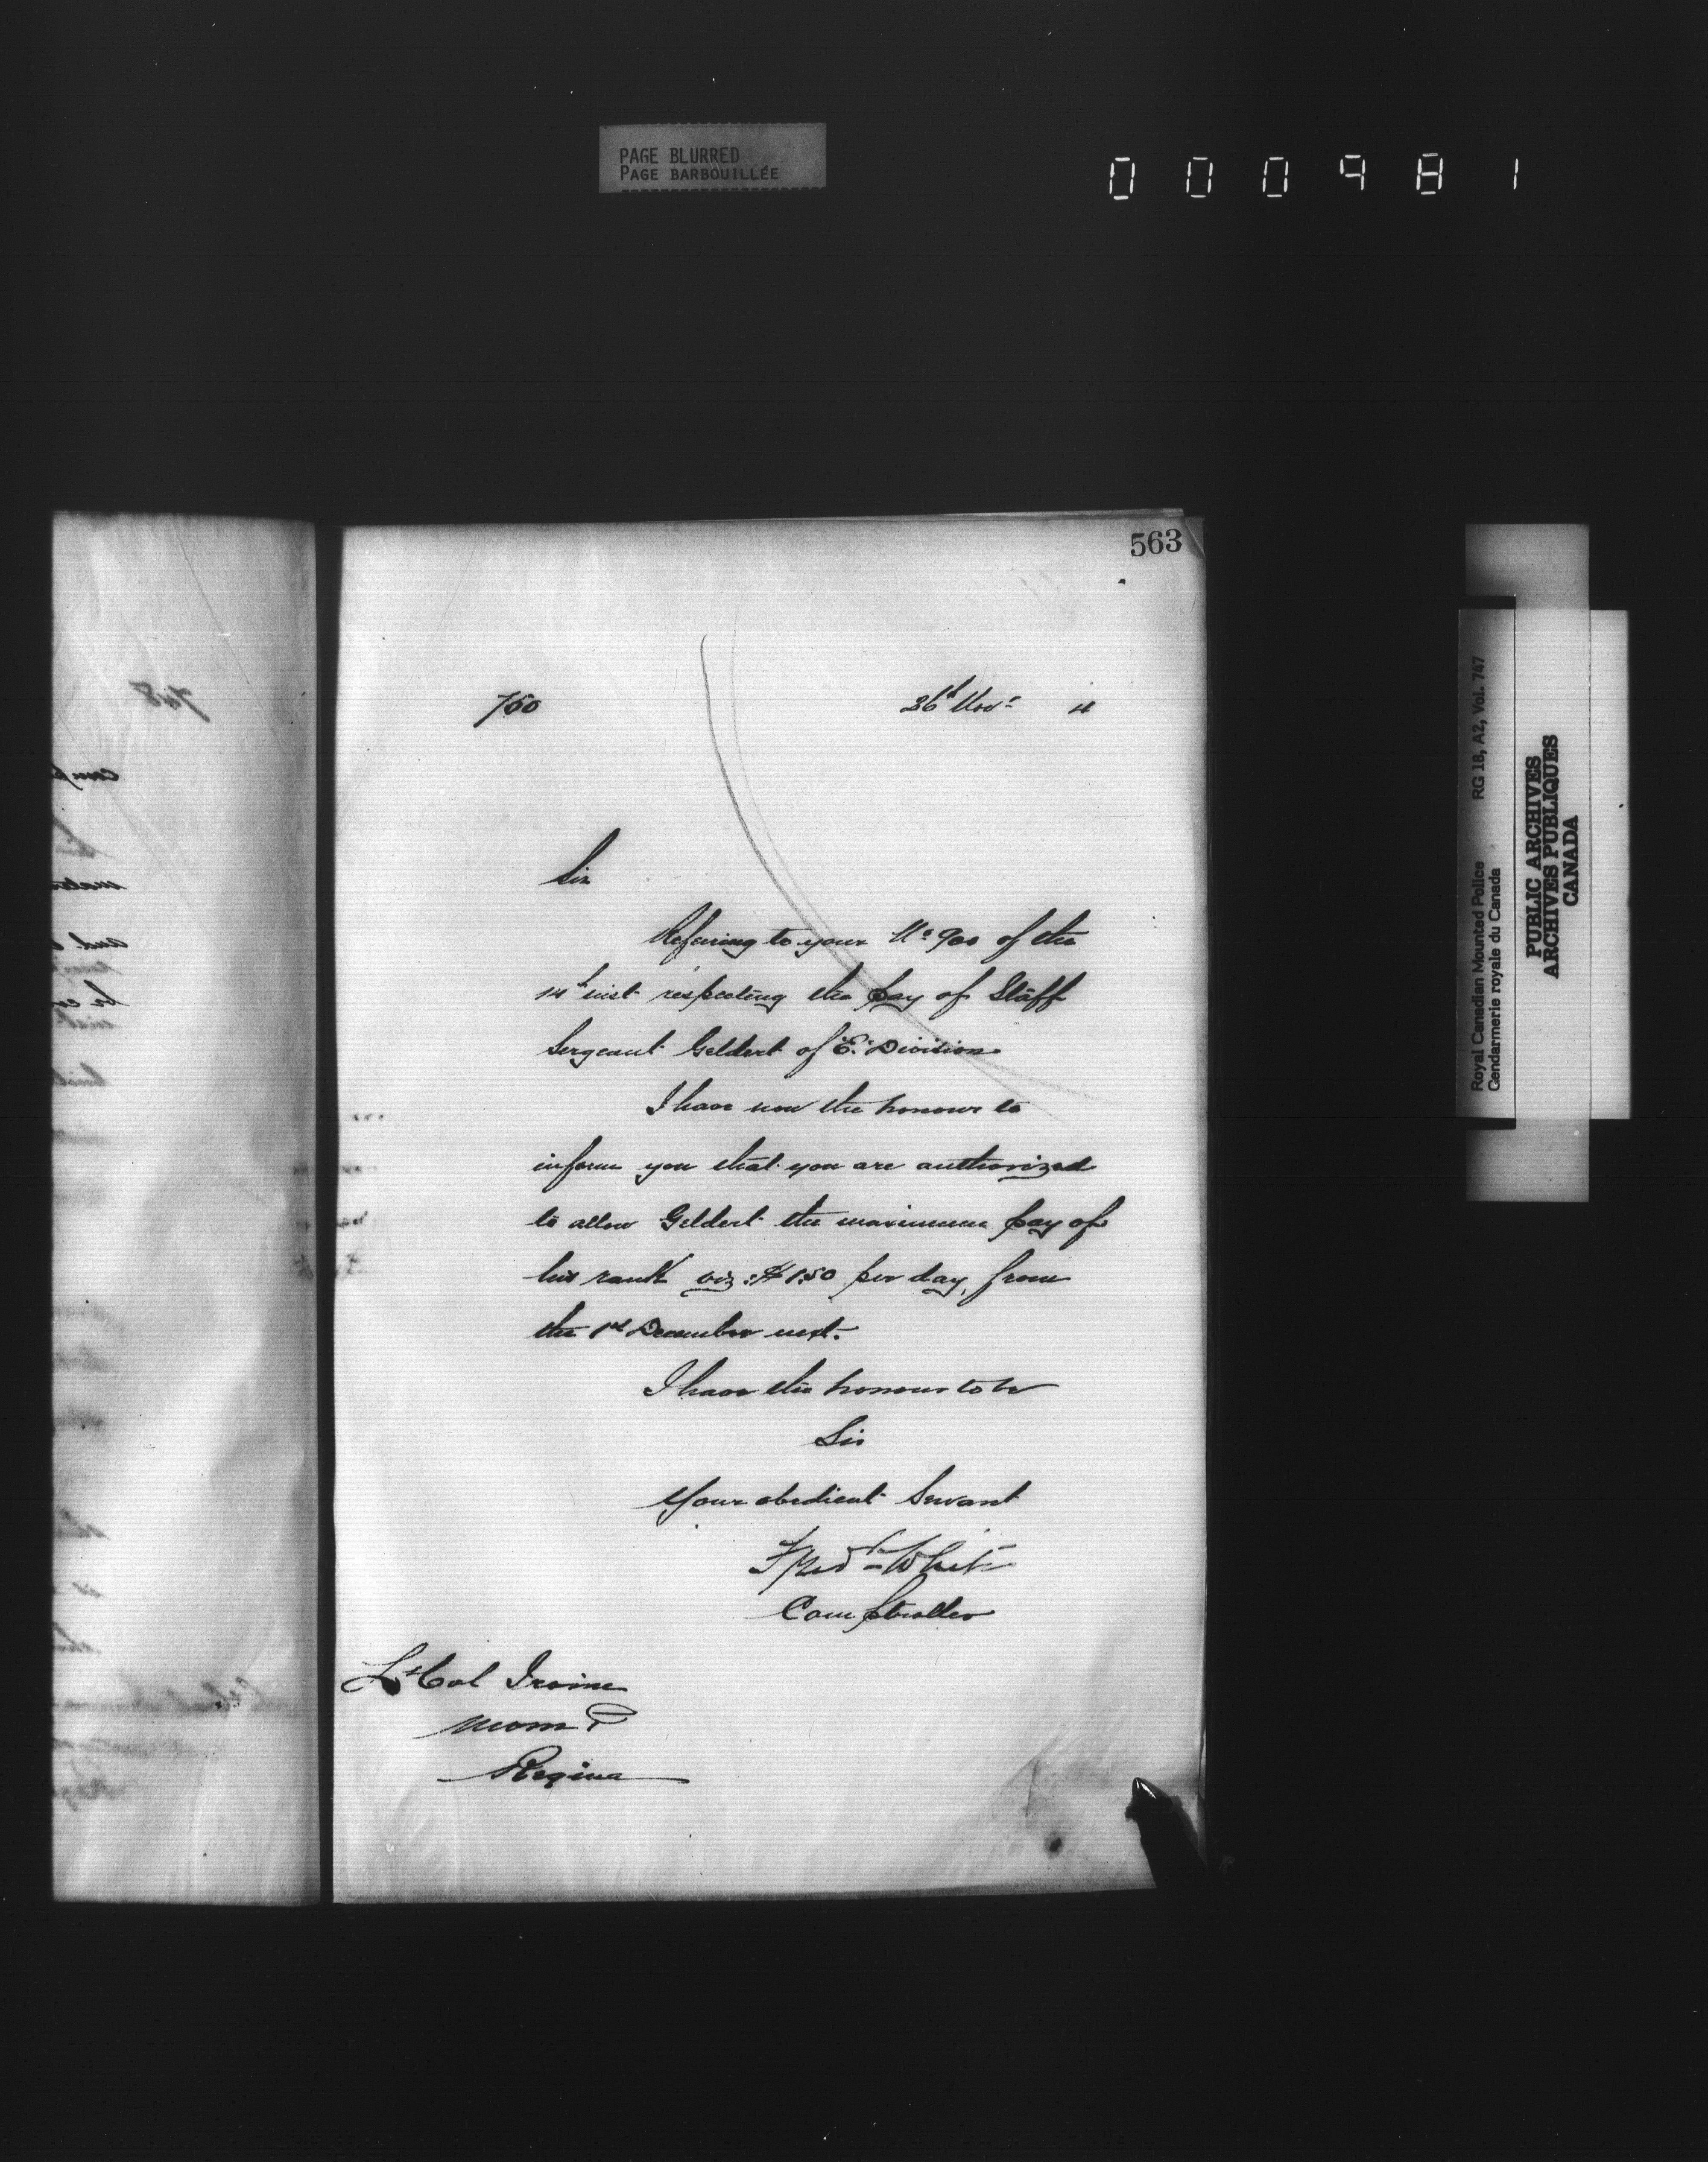 PAGE BLURRED
PAGE BARBOUILLÉE
000981
563
760
26th Novr
Sir
Referring to your No 900 of the
14th inst respecting the pay of Staff
Sergeant Geldert of "E" Division
I have now the honour to
inform you that you are authorized
to allow Geldert the maximum pay of
his rank viz: $1.50 per day, from
the 1st December next.
I have the honour to be
Sir
Your obedient Servant
Fred White
Comptroller
Lt Col Irvine
Regina
Royal Canadian Mounted Police RG 18, A2, Vol. 747
Gendarmerie royale du Canada
PUBLIC ARCHIVES
ARCHIVES PUBLIQUES
CANADA